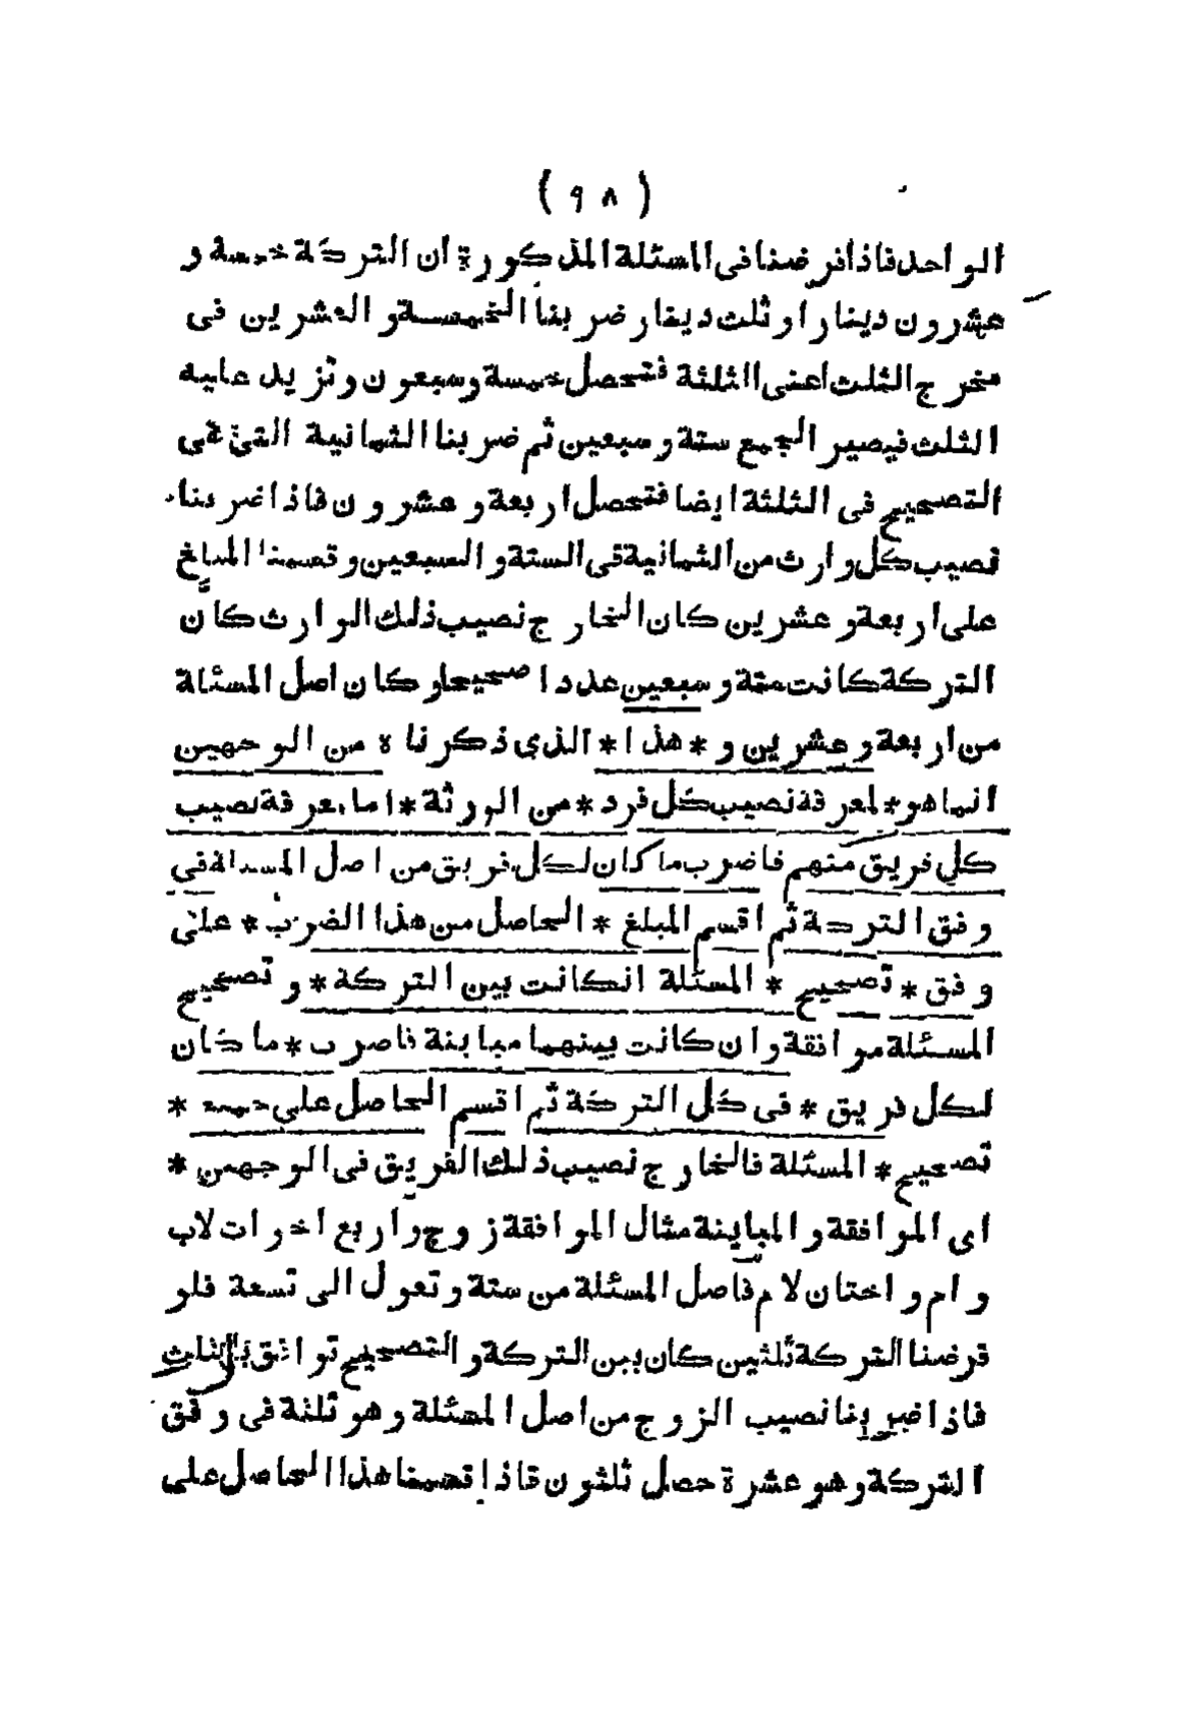 ( ٩٨ )
الواحد فاذا فرضنا فى المسئلة المذكورة ان التركة خمسة و
عشرون دينارا و ثلث دينار ضربنا الخمسة و العشرين فى
مخرج الثلث اعنى الثلثة فتحصل خمسة وسبعون و تزيد عليه
الثلث فيصير الجمع ستة و سبعين ثم ضربنا الثمانية التى هى
التصحيح فى الثلثة ايضا فتحصل اربعة و عشرون فاذا ضربنا
نصيب كل وارث من الثمانية فى الستة و السبعين و قسمنا المبلغ
على اربعة و عشرين كان الخارج نصيب ذلك الوارث كان
التركة كانت ستة و سبعين عددا صحيحا و كان اصل المسئلة
من اربعة و عشرين و * هذا * الذى ذكرناه من الوجهين
انما هو * لمعرفة نصيب كل فرد * من الورثة * اما معرفة نصيب
كل فريق منهم فاضرب ما كان لكل فريق من اصل المسئلة فى
وفق التركة ثم اقسم المبلغ * الحاصل من هذا الضرب * على
وفق * تصحيح * المسئلة انكانت بين التركة * و تصحيح
المسئلة موافقة وان كانت بينهما مباينة فاضرب * ما كان
لكل فريق * فى كل التركة ثم اقسم الحاصل على جميع *
تصحيح * المسئلة فالخارج نصيب ذلك الفريق فى الوجهين *
اى الموافقة و المباينة مثال الموافقة زوج و اربع اخوات لاب
و ام و اختان لام فاصل المسئلة من ستة و تعول الى تسعة فلو
فرضنا التركة ثلثين كان بين التركة و التصحيح توافق بالثلث
فاذا ضربنا نصيب الزوج من اصل المسئلة و هو ثلثة فى وفق
التركة و هو عشرة حصل ثلثون فاذا قسمنا هذا الحاصل على